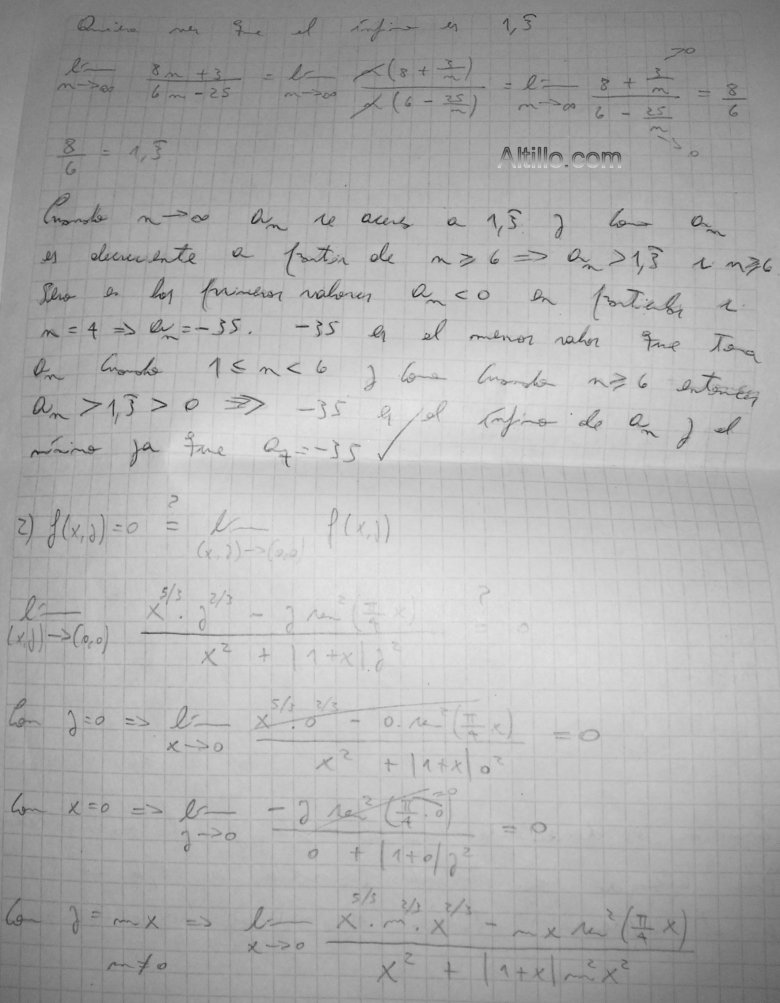 Quiero ver que el ínfimo es 1,3̄
lim n→∞ (8n + 3)/(6n − 25) = lim n→∞ n(8 + 3/n)/n(6 − 25/n) = lim n→∞ (8 + 3/n →0)/(6 − 25/n →0) = 8/6
8/6 = 1,3̄
Altillo.com
Cuando n→∞ an se acerca a 1,3̄ y como an
es decreciente a partir de n ≥ 6 ⇒ an > 1,3̄ si n ≥ 6
Pero en los primeros valores an < 0 en particular si
n = 4 ⇒ an = −35. −35 es el menor valor que toma
an cuando 1 ≤ n < 6 y como cuando n ≥ 6 entonces
an > 1,3̄ > 0 ⇒ −35 es el ínfimo de an y el
mínimo ya que a4 = −35 ✓
2) f(x,y) = 0 =? lim (x,y)→(0,0) f(x,y)
lim (x,y)→(0,0) (x^5/3 . y^2/3 − y sen²(π/4 x))/(x² + |1+x| y²) =? 0
Con y=0 ⇒ lim x→0 (x^5/3 . 0^2/3 − 0 . sen²(π/4 x))/(x² + |1+x| 0²) = 0
Con x=0 ⇒ lim y→0 (− y sen²(π/4 . 0) =0)/(0 + |1+0| y²) = 0
Con y = mx ⇒ lim x→0 (x^5/3 . m^2/3 . x^2/3 − mx sen²(π/4 x))/(x² + |1+x| m²x²)
m≠0